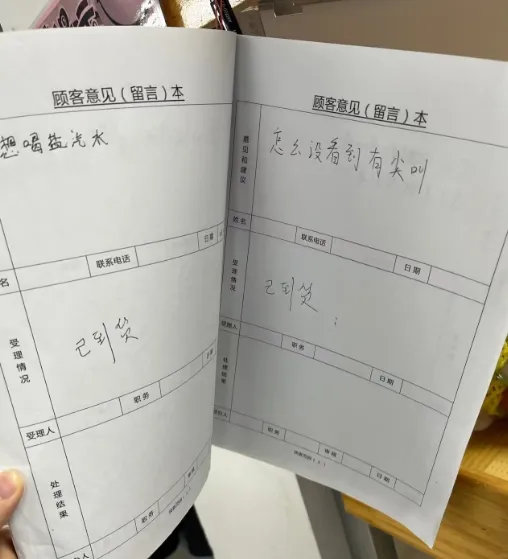 顾客意见(留言)本
想喝盐汽水
名
联系电话
日期
受理情况
已到货
受理人
职务
日期
处理结果
职务
顾客意见(留言)本
意见和建议
怎么没看到有尖叫
姓名
联系电话
日期
受理情况
已到货
受理人
职务
日期
处理结果
职务
日期